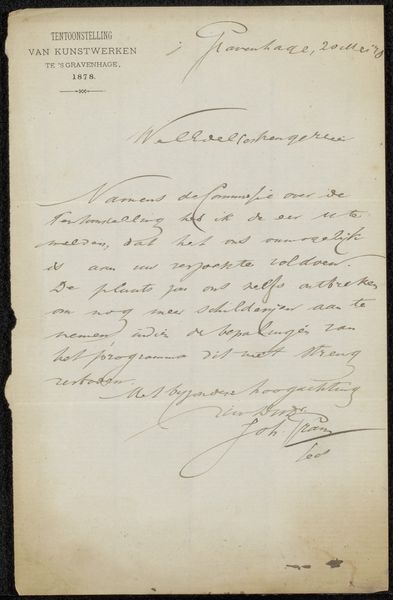 TENTOONSTELLING
VAN KUNSTWERKEN
TE 'S GRAVENHAGE,
1878.
s Gravenhage, 20 Mei
WelEdel
Namens de Commissie over de
Tentoonstelling heb ik de eer U te
melden, dat het ons onmogelijk
is aan uw verzoek te voldoen.
De plaats zou ons zelfs ontbreken
om nog meer schilderijen aan te
nemen, indien de bepalingen van
het programma dit niet streng
verboden.
Met bijzondere hoogachting
Uw
Joh. Gram
Secs